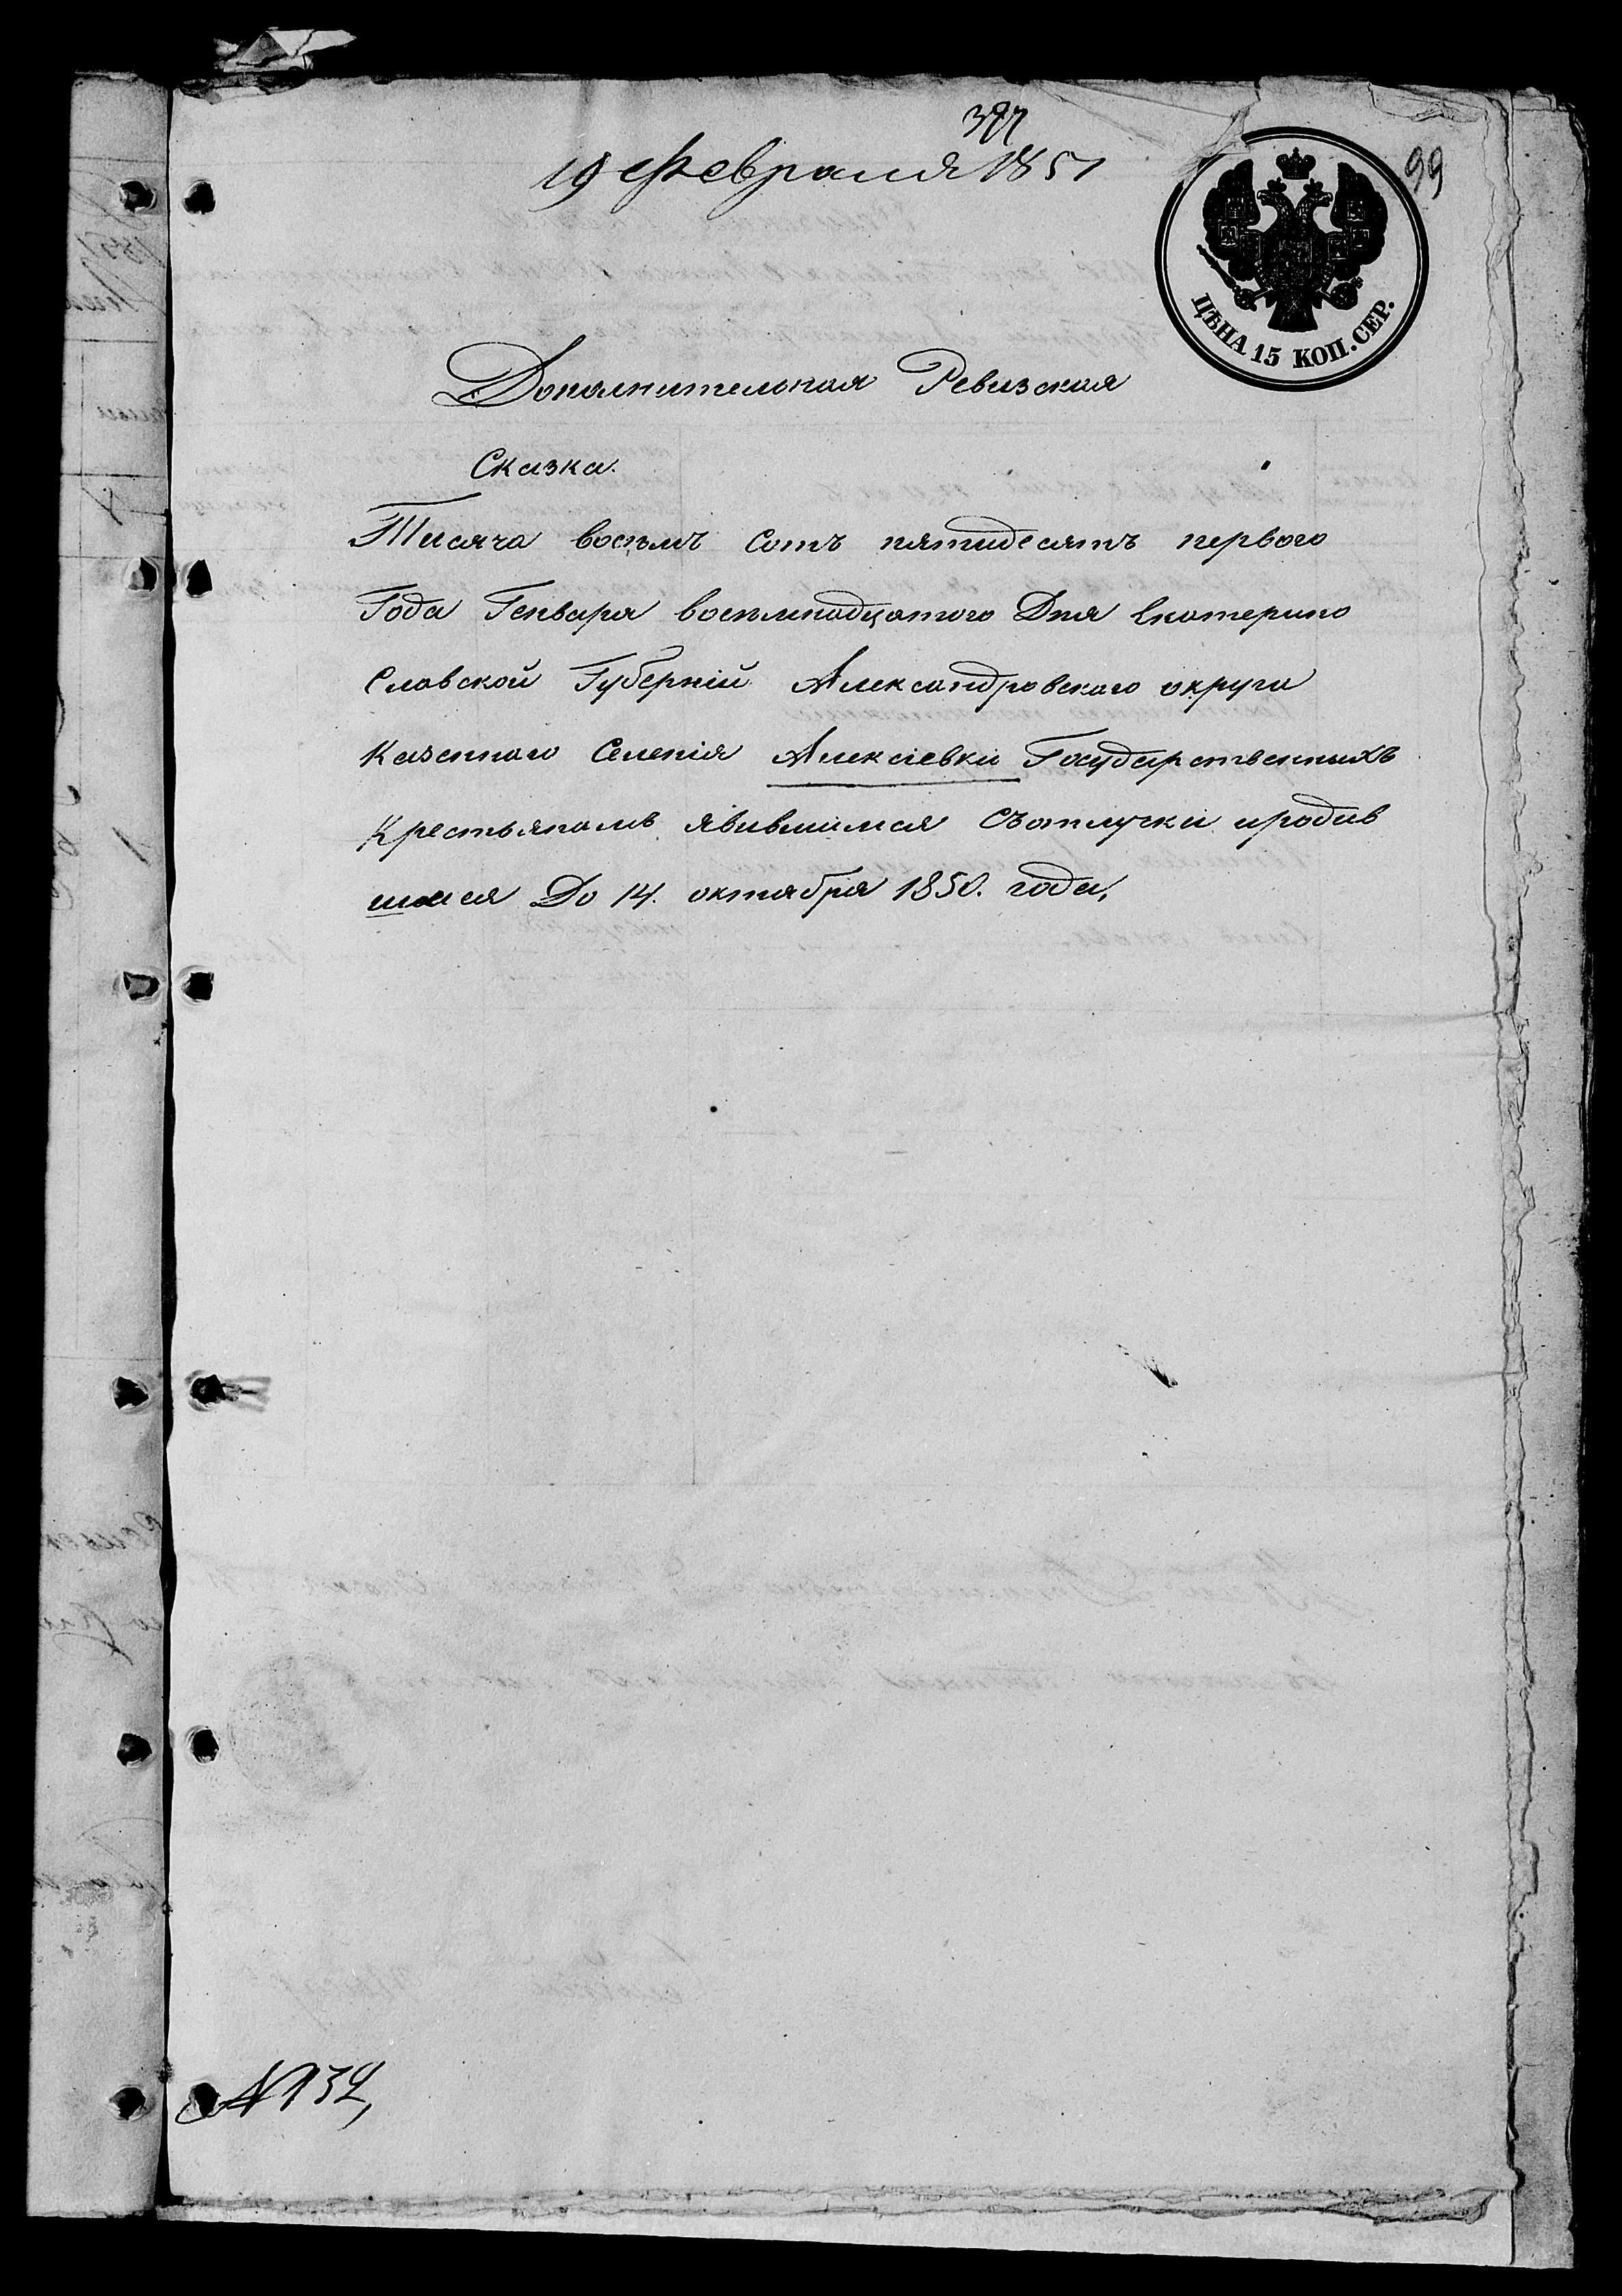 377
19 Февраля 1851
99
ЦѢНА 15 КОП. СЕР.
Дополнительная Ревизская
Сказка.
Тисяча восѣмъ сотъ пятидесятъ первого
Года Генваря восѣмнадцатого Дня Екатерино
Славской Губерніи Александровскаго округа
Казенного Селенія Алексіевки Государственныхъ
Крестьяномъ явившимся Съотлучки иродив
шимся До 14. октября 1850. года,
№ 132,